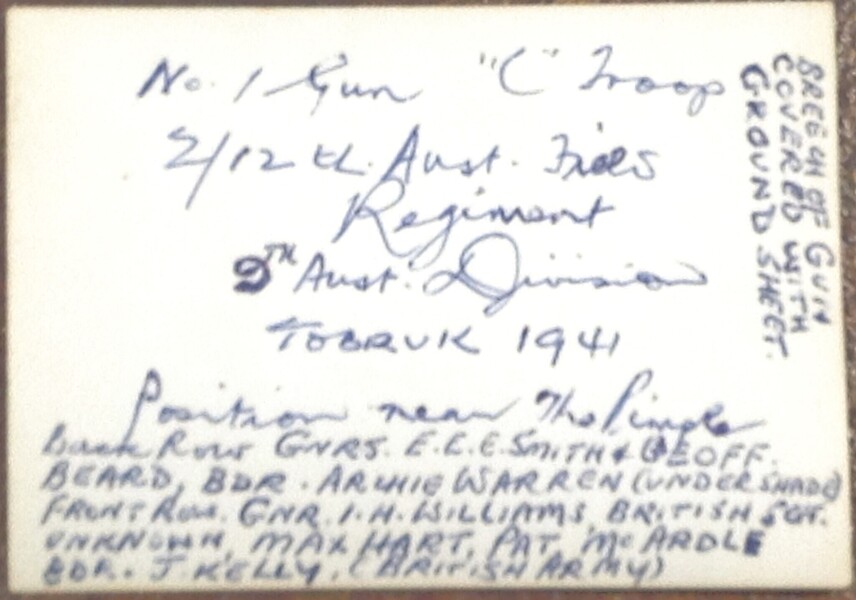 No. 1 Gun "C" Troop
2/12 th. Aust. Field
Regiment
9TH Aust. Division
TOBRUK 1941
Position near The Pimple
BACK ROW GNRS. E.E.E. SMITH & GEOFF.
BEARD, BDR. ARCHIE WARREN (UNDER SHADE)
FRONT ROW. GNR. I.H. WILLIAMS, BRITISH SGT.
UNKNOWN, MAX HART, PAT McARDLE
BDR. J. KELLY, (BRITISH ARMY)
BREECH OF GUN
COVERED WITH
GROUND SHEET.